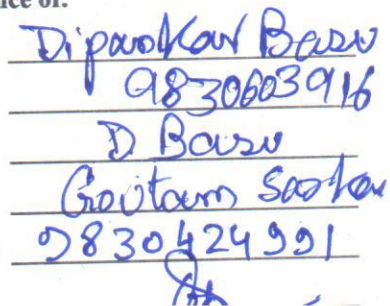 ice of:
Dipankar Basu
9830603916
D Basu
Goutam Sarkar
9830424991